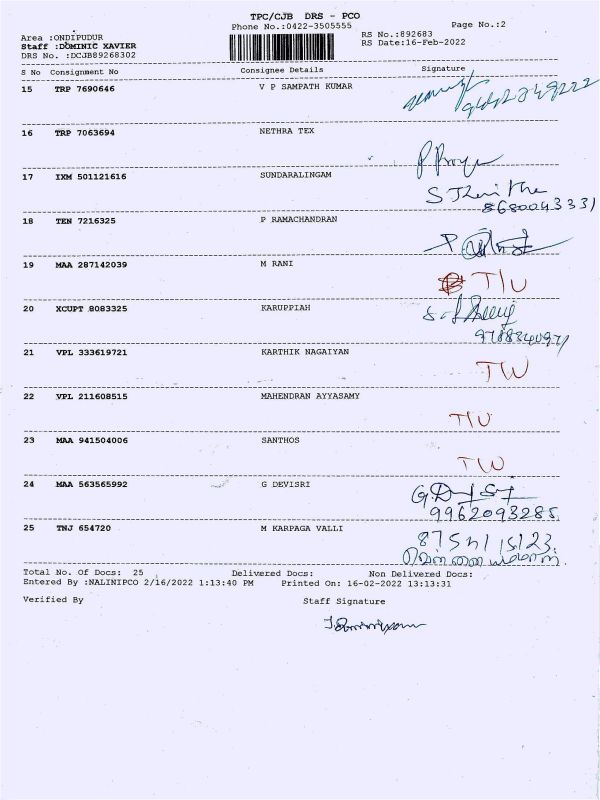 TPC/CJB DRS - PCO
Phone No.:0422-3505555 Page No.:2
Area :ONDIPUDUR RS No.:892683
Staff :DOMINIC XAVIER RS Date:16-Feb-2022
DRS No. :DCJB89268302
S No Consignment No Consignee Details Signature
15 TRP 7690646 V P SAMPATH KUMAR
16 TRP 7063694 NETHRA TEX
17 IXM 501121616 SUNDARALINGAM
8680043331
18 TEN 7216325 P RAMACHANDRAN
19 MAA 287142039 M RANI
T/U
20 XCUPT 8083325 KARUPPIAH
9788340971
21 VPL 333619721 KARTHIK NAGAIYAN
T/U
22 VPL 211608515 MAHENDRAN AYYASAMY
T/U
23 MAA 941504006 SANTHOS
T/U
24 MAA 563565992 G DEVISRI
9962093285
25 TNJ 654720 M KARPAGA VALLI
Total No. Of Docs: 25 Delivered Docs: Non Delivered Docs:
Entered By :NALINIPCO 2/16/2022 1:13:40 PM Printed On: 16-02-2022 13:13:31
Verified By Staff Signature